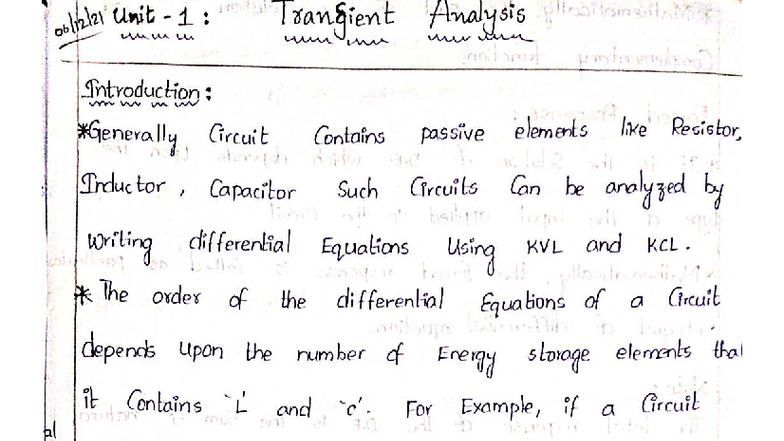 06/12/21 Unit - 1 : Transient Analysis
Introduction :
*Generally Circuit Contains passive elements like Resistor,
Inductor , Capacitor Such Circuits Can be analyzed by
writing differential Equations Using KVL and KCL.
* The order of the differential Equations of a Circuit
depends upon the number of Energy storage elements that
it Contains `L' and `C'. For Example, if a Circuit